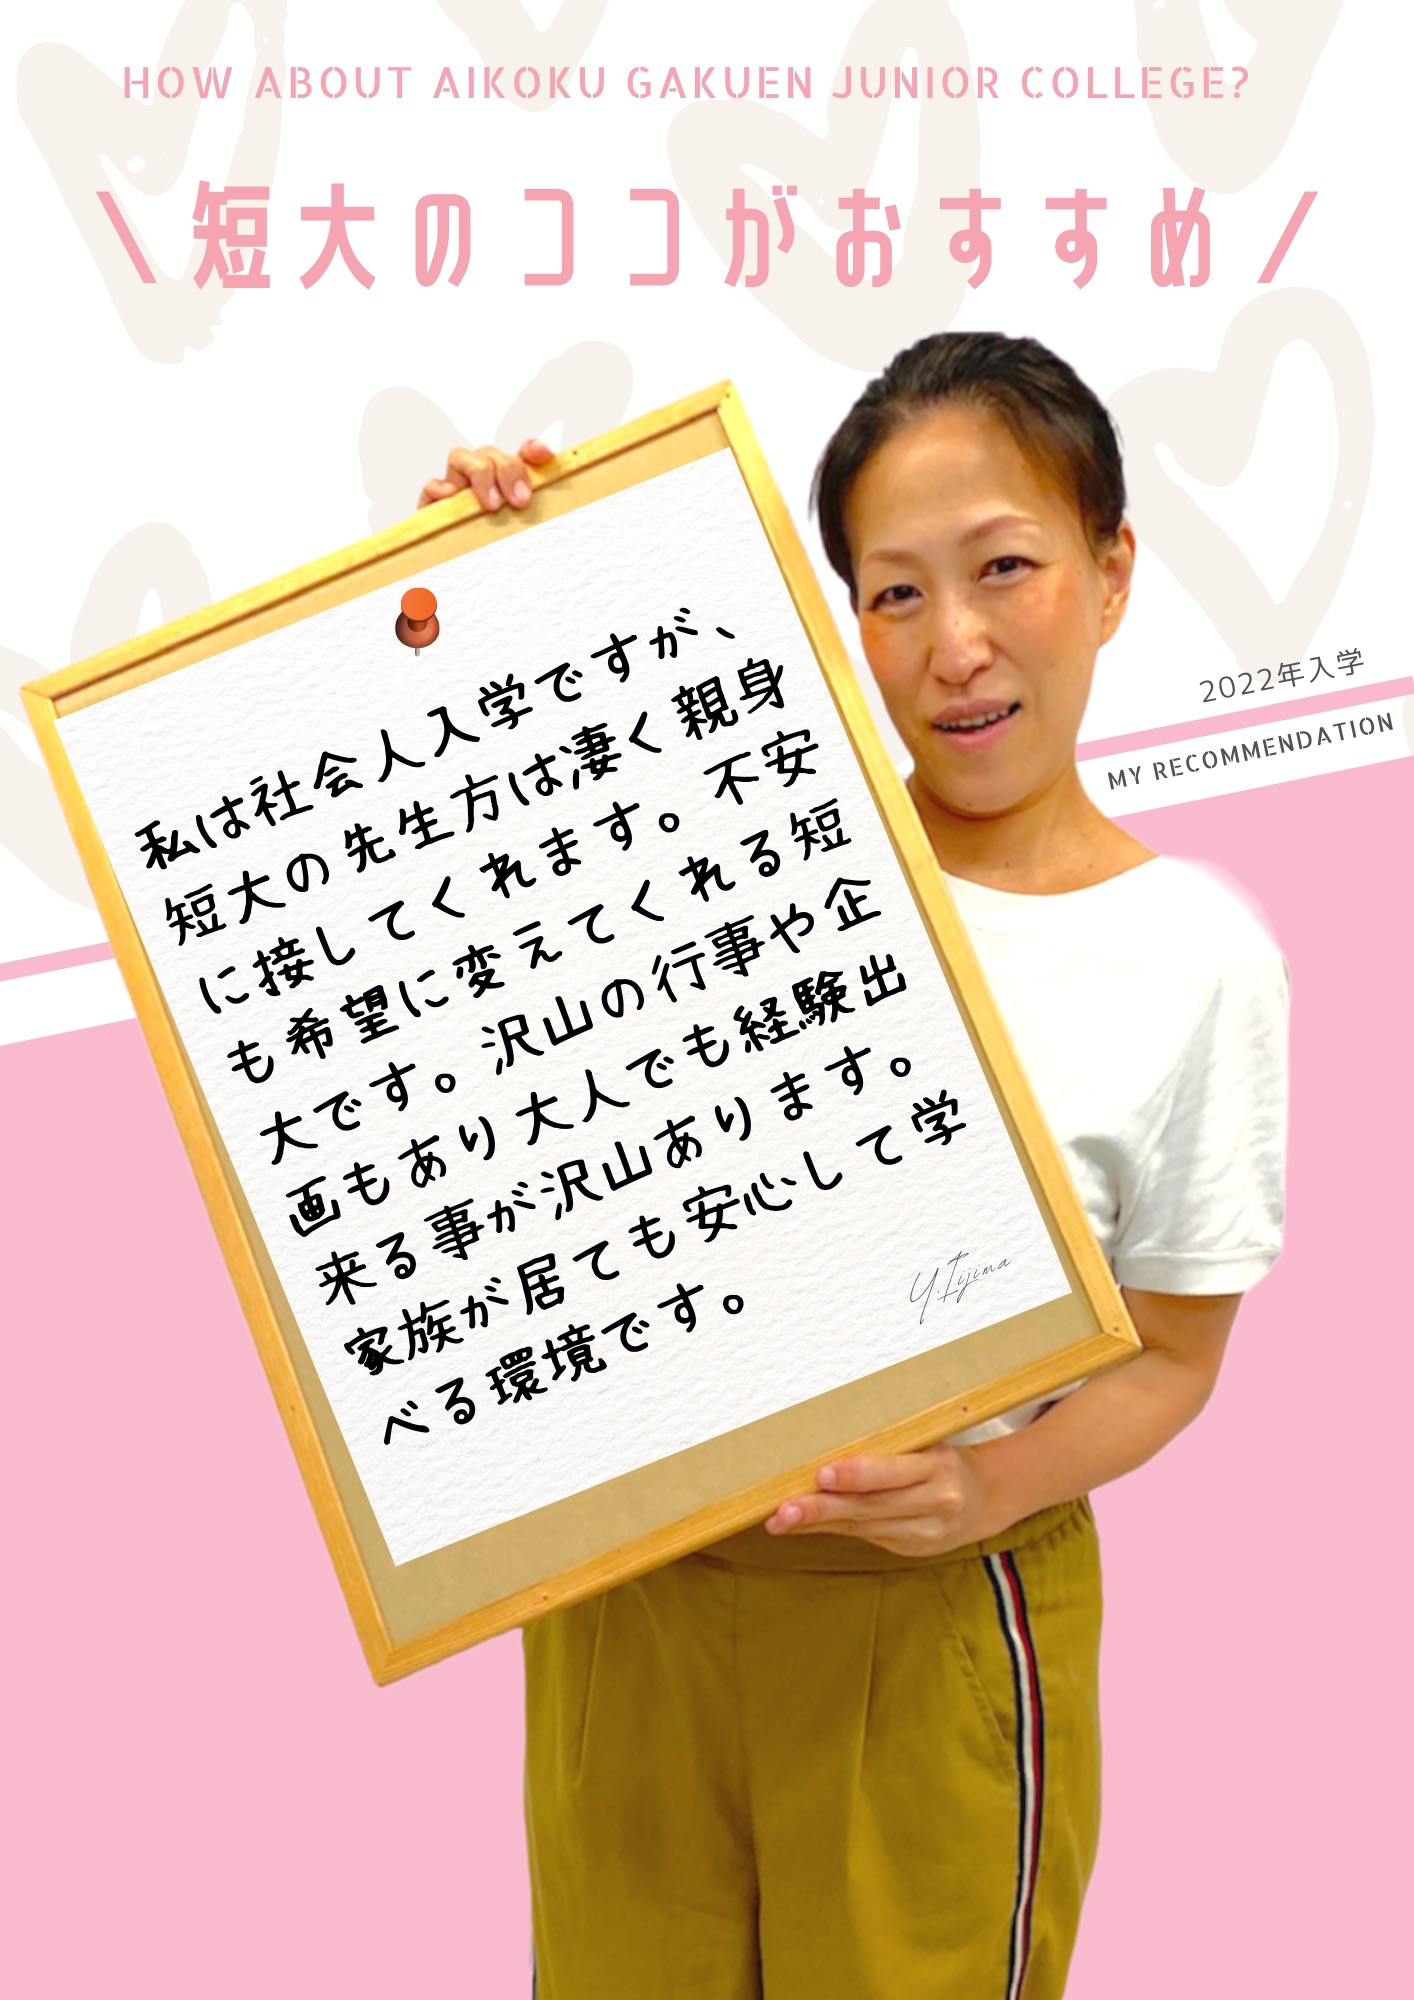 HOW ABOUT AIKOKU GAKUEN JUNIOR COLLEGE?
\短大のココがおすすめ/
2022年入学
MY RECOMMENDATION
私は社会人入学ですが、
短大の先生方は凄く親身
に接してくれます。不安
も希望に変えてくれる短
大です。沢山の行事や企
画もあり大人でも経験出
来る事が沢山あります。
家族が居ても安心して学
べる環境です。
Y.Iijima